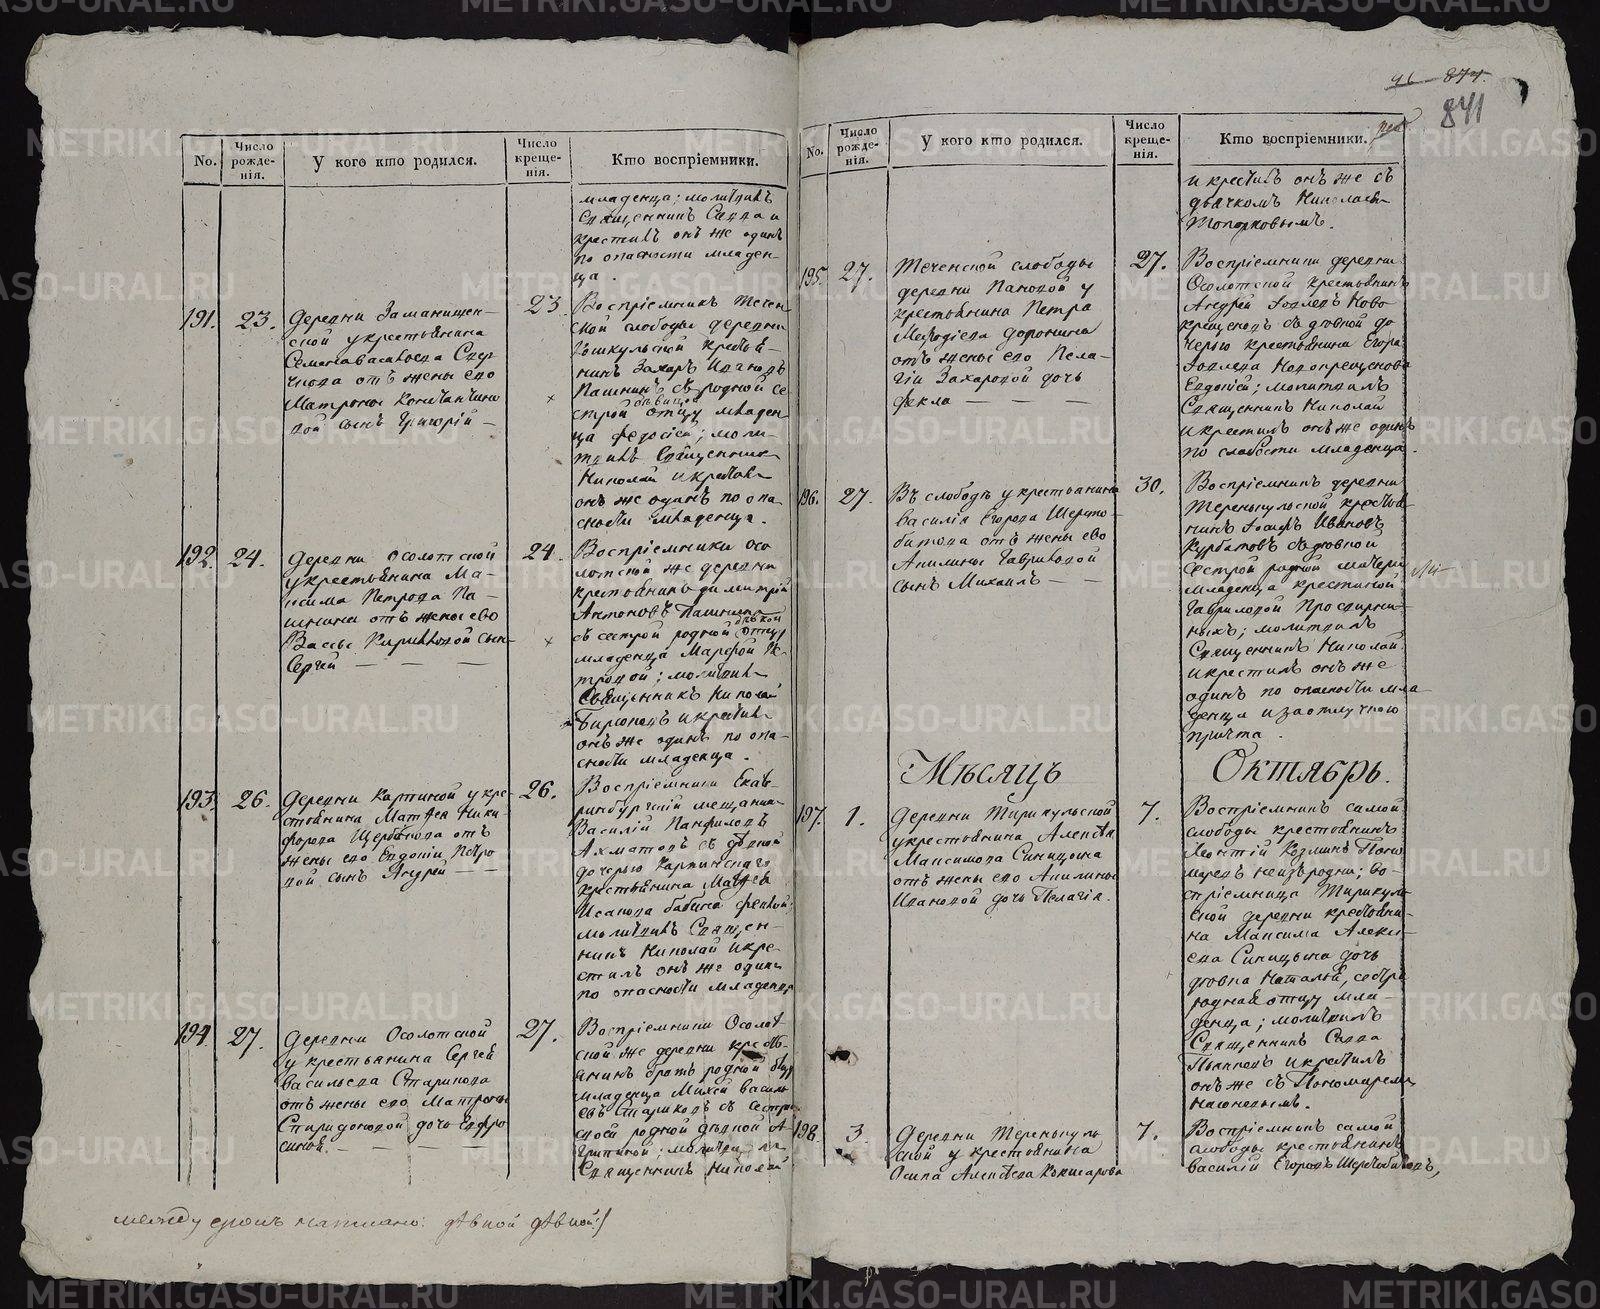 No.
Число рожденія.
У кого кто родился.
Число крещенія.
Кто воспріемники.
младенца; молитвилъ
Священникъ Савва и
крестилъ онъ же одинъ
по опасности младен-
ца.
191.
23.
Деревни Заманищен-
ской у крестьянина
Семена Васильева
отъ жены его
Матроны Константино
вой сынъ Григорій —
23.
Воспріемникъ Течен
ской слободы деревни
Кошкульской крестья-
нинъ Захаръ Ивановъ
Пашнинъ съ родной се
строй дѣвицей отцу младен
ца Федосіей; моли-
твилъ Священникъ
Николай и крестилъ
онъ же одинъ по опа-
сности младенца.
192.
24.
Деревни Осолотской
у крестьянина Ма-
ксима Петрова Па-
шнина отъ жены его
Вассы Кириловой сынъ
Сергій — — —
24.
Воспріемники Осо
лотской же деревни
крестьянинъ Димитрій
Антоновъ Пашнинъ
съ сестрой родной дѣвкой отцу
младенца Марфой Пе-
тровой; молитвилъ
Священникъ Николай
Бирюковъ и крестилъ
онъ же одинъ по опа-
сности младенца.
193.
26.
Деревни Карпиной у кре-
стьянина Матфея Ники-
форова Щербакова отъ
жены его Евдокіи Петро
вой сынъ Андрей — —
26.
Воспріемники Екате-
ринбургскій мещанинъ
Василій Панфиловъ
Ахматовъ съ дѣвкой
дочерью Карпинскаго
крестьянина Матфея
Исакова Бабина Феклой;
молитвилъ Священ-
никъ Николай и кре-
стилъ онъ же одинъ
по опасности младенца
194.
27.
Деревни Осолотской
у крестьянина Сергея
Васильева Старикова
отъ жены его Матроны
Спиридоновой дочь Евфро
синія. — — —
27.
Воспріемники Осолот
ской же деревни кресть-
янинъ братъ родной отцу
младенца Михей Василь
евъ Стариковъ съ сестрой
своей родной дѣвкой А-
грипиной; молитвилъ
Священникъ Николай
между строкъ написано: дѣвкой дѣвкой:/
96 874.
841
No.
Число рожденія.
У кого кто родился.
Число крещенія.
Кто воспріемники.
и крестилъ онъ же съ
дьячкомъ Николаемъ
Топорковымъ.
195.
27.
Теченской слободы
деревни Пановой у
крестьянина Петра
Мефодіева Доронина
отъ жены его Пела-
гіи Захаровой дочь
Фекла — — —
27.
Воспріемники деревни
Осолотской крестьянинъ
Андрей Іовлевъ Ново
крещеновъ съ дѣвкой до
черью крестьянина Егора
Іовлева Новокрещенова
Евдокіей; молитвилъ
Священникъ Николай
и крестилъ онъ же одинъ
по слабости младенца.
196.
27.
Въ слободѣ у крестьянина
Василія Егорова Шерсто-
битова отъ жены его
Акилины Гавриловой
сынъ Михаилъ — —
30.
Воспріемникъ деревни
Теренькульской крестья-
нинъ Іосифъ Ивановъ
Курбатовъ съ дѣвкой
сестрой родной матери
младенца крестиной
Гавриловой Просвирни-
ныхъ; молитвилъ
Священникъ Николай
и крестилъ онъ же
одинъ по опасности мла-
денца и за отлучкою
причта.
Мѣсяцъ
Октябрь.
197.
1.
Деревни Тирикульской
у крестьянина Алексѣя
Максимова Синицына
отъ жены его Акилины
Ивановой дочь Пелагія.
7.
Воспріемникъ самой
слободы крестьянинъ
Леонтій Козминъ Поно
маревъ неизъ родни; во-
спріемница Тирикуль-
ской деревни крестьяни-
на Максима Алексѣ-
ева Синицына дочь
дѣвка Наталья, сестра
родная отцу мла-
денца; молитвилъ
Священникъ Савва
Пьянковъ и крестилъ
онъ же съ Пономаремъ
198.
3.
Деревни Теренькуль
ской у крестьянина
Осипа Алексѣева Кокшарова
7.
Воспріемникъ самой
слободы крестьянинъ
Василій Егоровъ Шерстобитовъ,